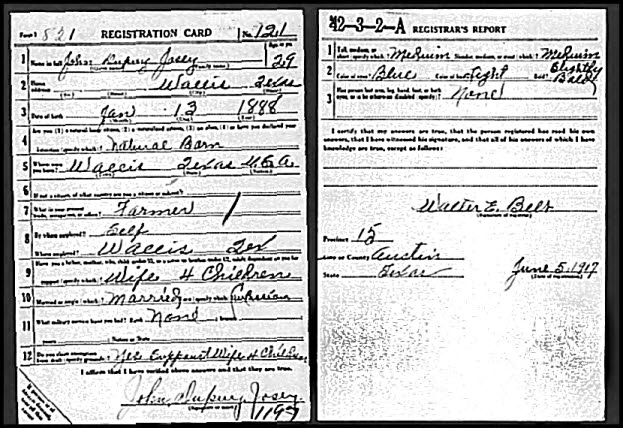 Form 1 821 REGISTRATION CARD No. 121
1 Name in full John Dupuy Josey Age in yrs 29
2 Home address Wallis Texas
3 Date of birth Jan 13 1888
4 Are you (1) a natural born citizen, (2) a naturalized citizen, (3) an alien, (4) or have you declared your
intention (specify which)? Natural Born
5 Where were you born? Wallis Texas U.S.A.
6 If not a citizen, of what country are you a citizen or subject?
7 What is your present trade, occupation, or office? Farmer
8 By whom employed? Self
Where employed? Wallis Tex
9 Have you a father, mother, wife, child under 12, or a sister or brother under 12, solely dependent on you for
support (specify which)? Wife 4 Children
10 Married or single (which)? Married Race (specify which)? Caucasian
11 What military service have you had? Rank None branch
years Nation or State
12 Do you claim exemption from draft (specify grounds)? Yes Support Wife 4 Children
I affirm that I have verified above answers and that they are true.
John Dupuy Josey
(Signature or mark)
1197
42-3-2-A REGISTRAR'S REPORT
1 Tall, medium, or short (specify which)? Medium Slender, medium, or stout (which)? Medium
2 Color of eyes? Blue Color of hair? Light Bald? Slightly Bald
3 Has person lost arm, leg, hand, foot, or both eyes, or is he otherwise disabled (specify)? None
I certify that my answers are true, that the person registered has read his own
answers, that I have witnessed his signature, and that all of his answers of which I have
knowledge are true, except as follows:
Walter E. Belt
(Signature of registrar)
Precinct 15
City or County Austin
State Texas June 5, 1917
(Date of registration)